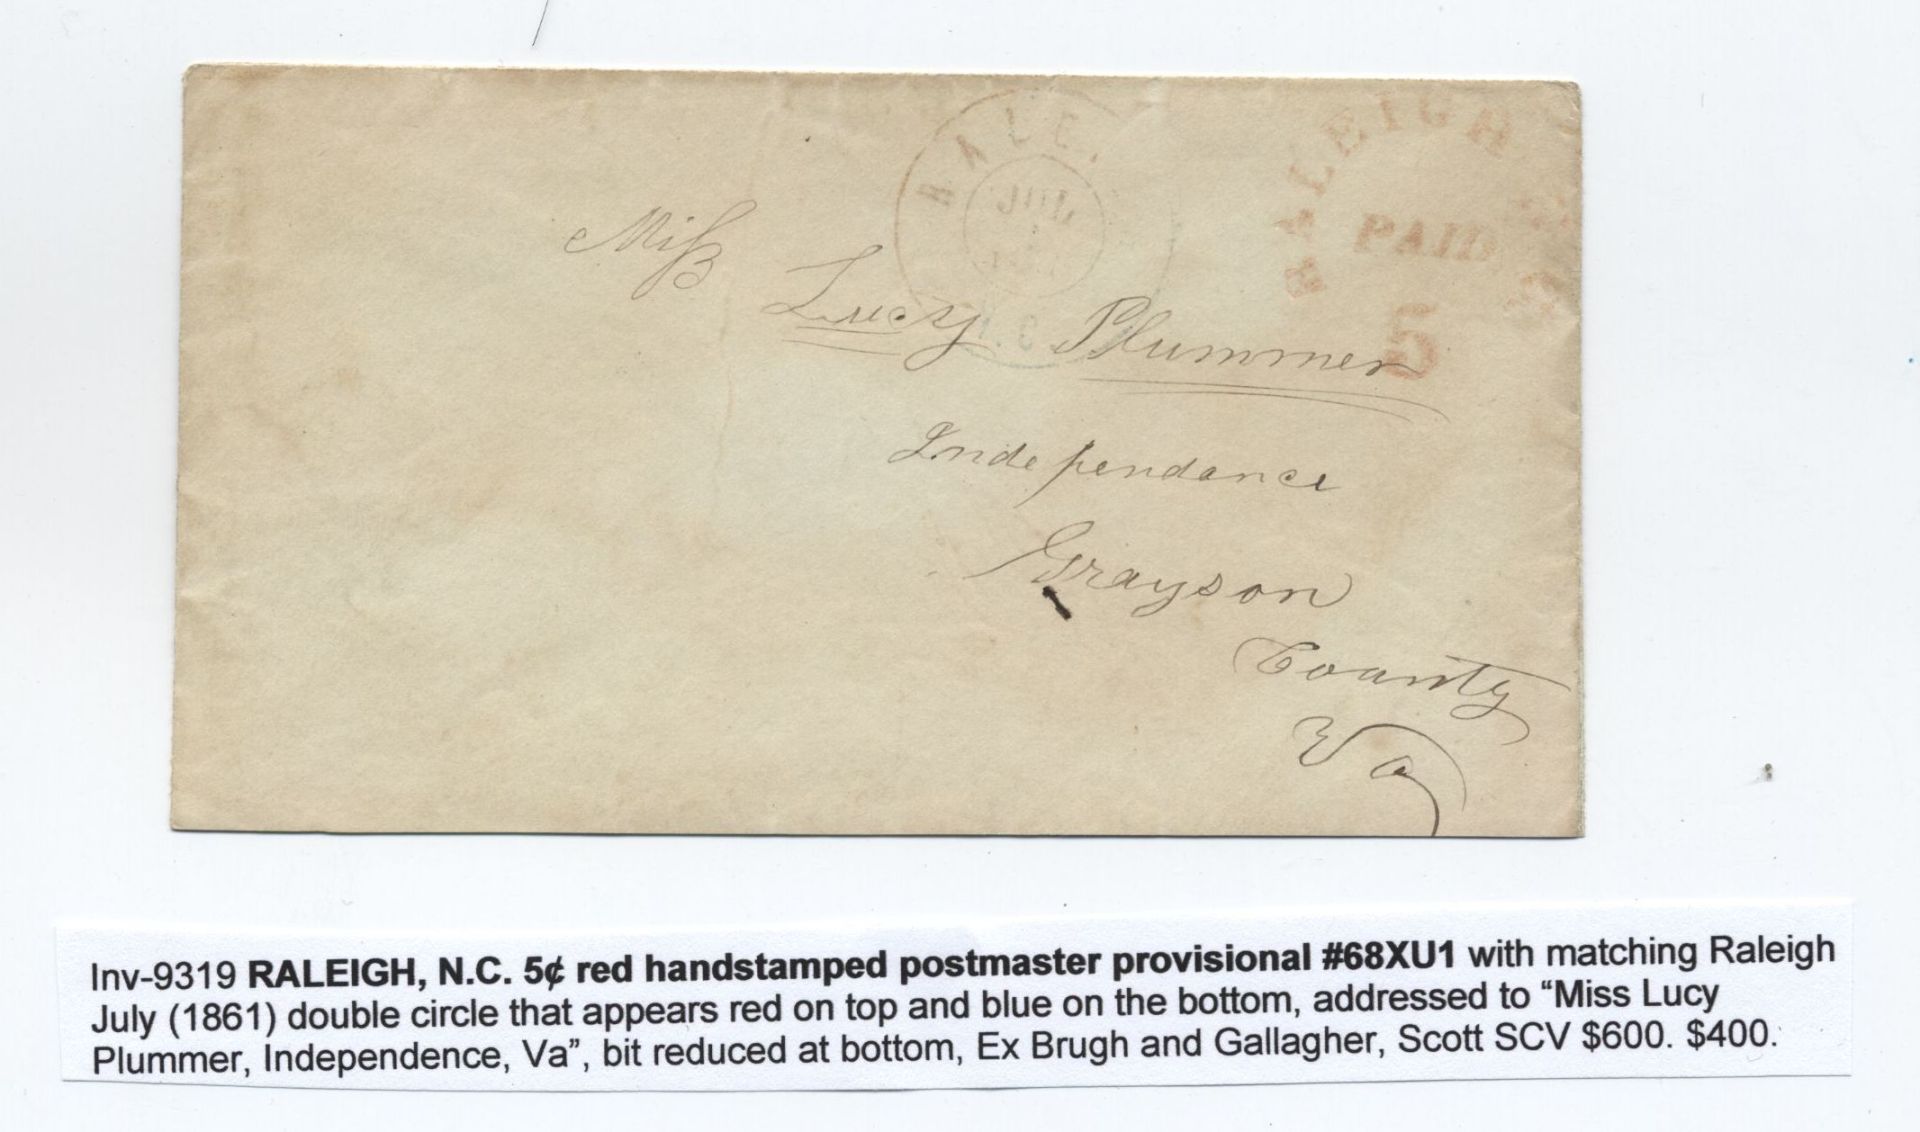 RALEIGH N.C
PAID
5
RALE.
JUL
N.C
Miss
Lucy Plummer
Independance
Grayson
County
Va
Inv-9319 RALEIGH, N.C. 5¢ red handstamped postmaster provisional #68XU1 with matching Raleigh
July (1861) double circle that appears red on top and blue on the bottom, addressed to “Miss Lucy
Plummer, Independence, Va”, bit reduced at bottom, Ex Brugh and Gallagher, Scott SCV $600. $400.